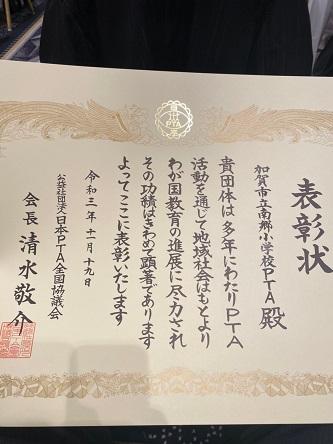 日
PTA
表彰状
加賀市立南郷小学校PTA 殿
貴団体は多年にわたりPTA
活動を通じて地域社会はもとより
わが国教育の進展に尽力され
その功績はきわめて顕著であります
よってここに表彰いたします
令和三年十一月十九日
公益社団法人日本PTA全国協議会
会長 清水敬介